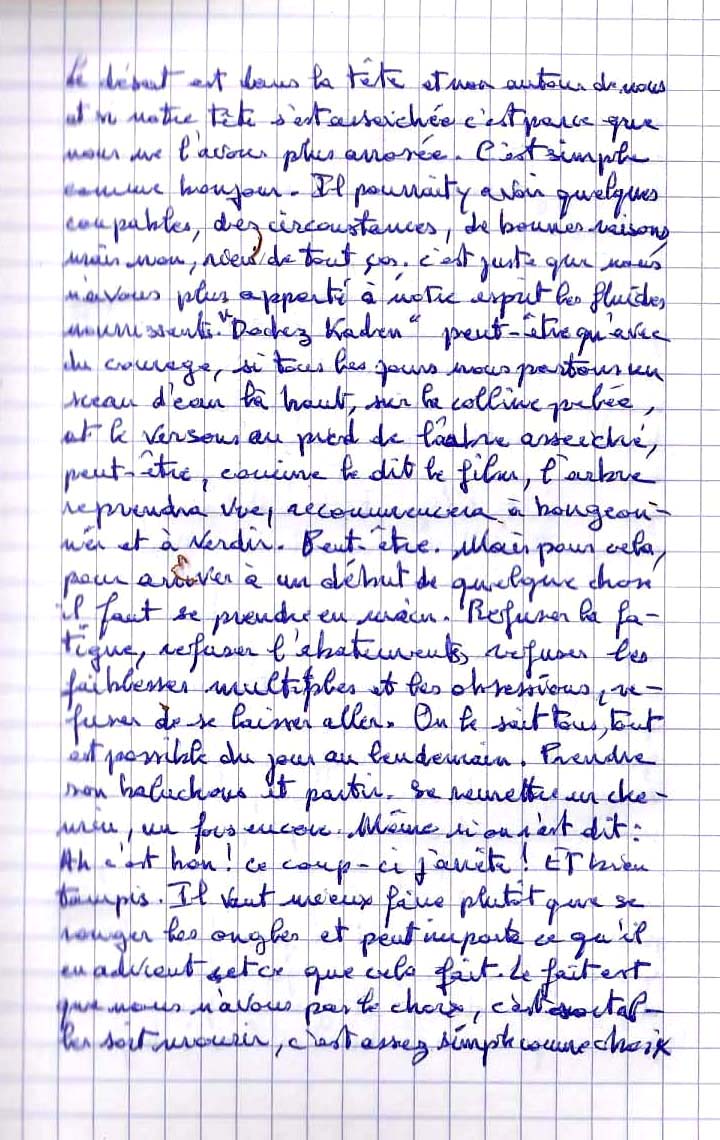 Le désert est dans la tête et non autour de nous
et si notre tête s'est asseichée c'est parce que
nous ne l'avons plus arrosée. C'est simple
comme bonjour. Il pourrait y avoir quelques
coupables, des circonstances, de bonnes raisons,
mais non, rien de tout ça, c'est juste que nous
n'avons plus apporté à notre esprit les fluides
nourrissants. peut-être qu'avec
du courage, si tous les jours nous portons un
sceau d'eau là haut, sur la colline pelée,
et le versons au pied de l'arbre asseiché,
peut-être, comme le dit le film, l'arbre
reprendra vie, recommencera à bourgeon-
ner et à verdir. Peut-être. Mais pour cela,
pour arriver à un début de quelque chose
il faut se prendre en main. Refuser la fa-
tigue, refuser l'abattement, refuser les
faiblesses multiples et les obsessions, re-
fuser de se laisser aller. On le sait tous, tout
est possible du jour au lendemain. Prendre
son baluchon et partir. Se remettre en che-
min, un fois encore. Même si on s'est dit:
Ah c'est bon! ce coup-ci j'arrête! ET bien
tampis. Il vaut mieux faire plutôt que se
ronger les ongles et peut importe ce qu'il
en advient et ce que cela fait. Le fait est
que nous n'avons pas le choix, c'est
soit mourir, c'est assez simple comme choix